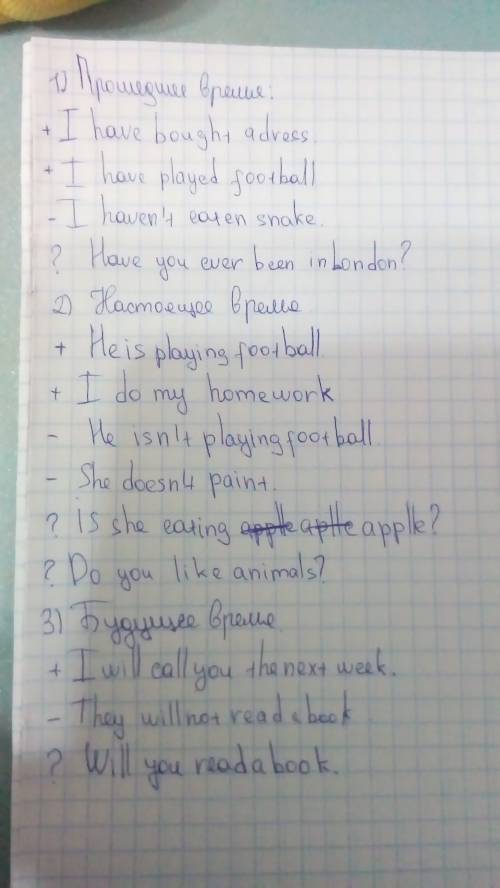 1) Прошедшее время:
+ I have bought adress.
+ I have played football
- I haven't eaten snake.
? Have you ever been inLondon?
2) Настоещее время
+ He is playing football
+ I do my homework
- He isn't playing football
- She doesn't paint.
? is she eating applle aplle applle?
? Do you like animals?
3) Будущее время
+ I will call you the next week.
- They will not read a book
? Will you read a book.